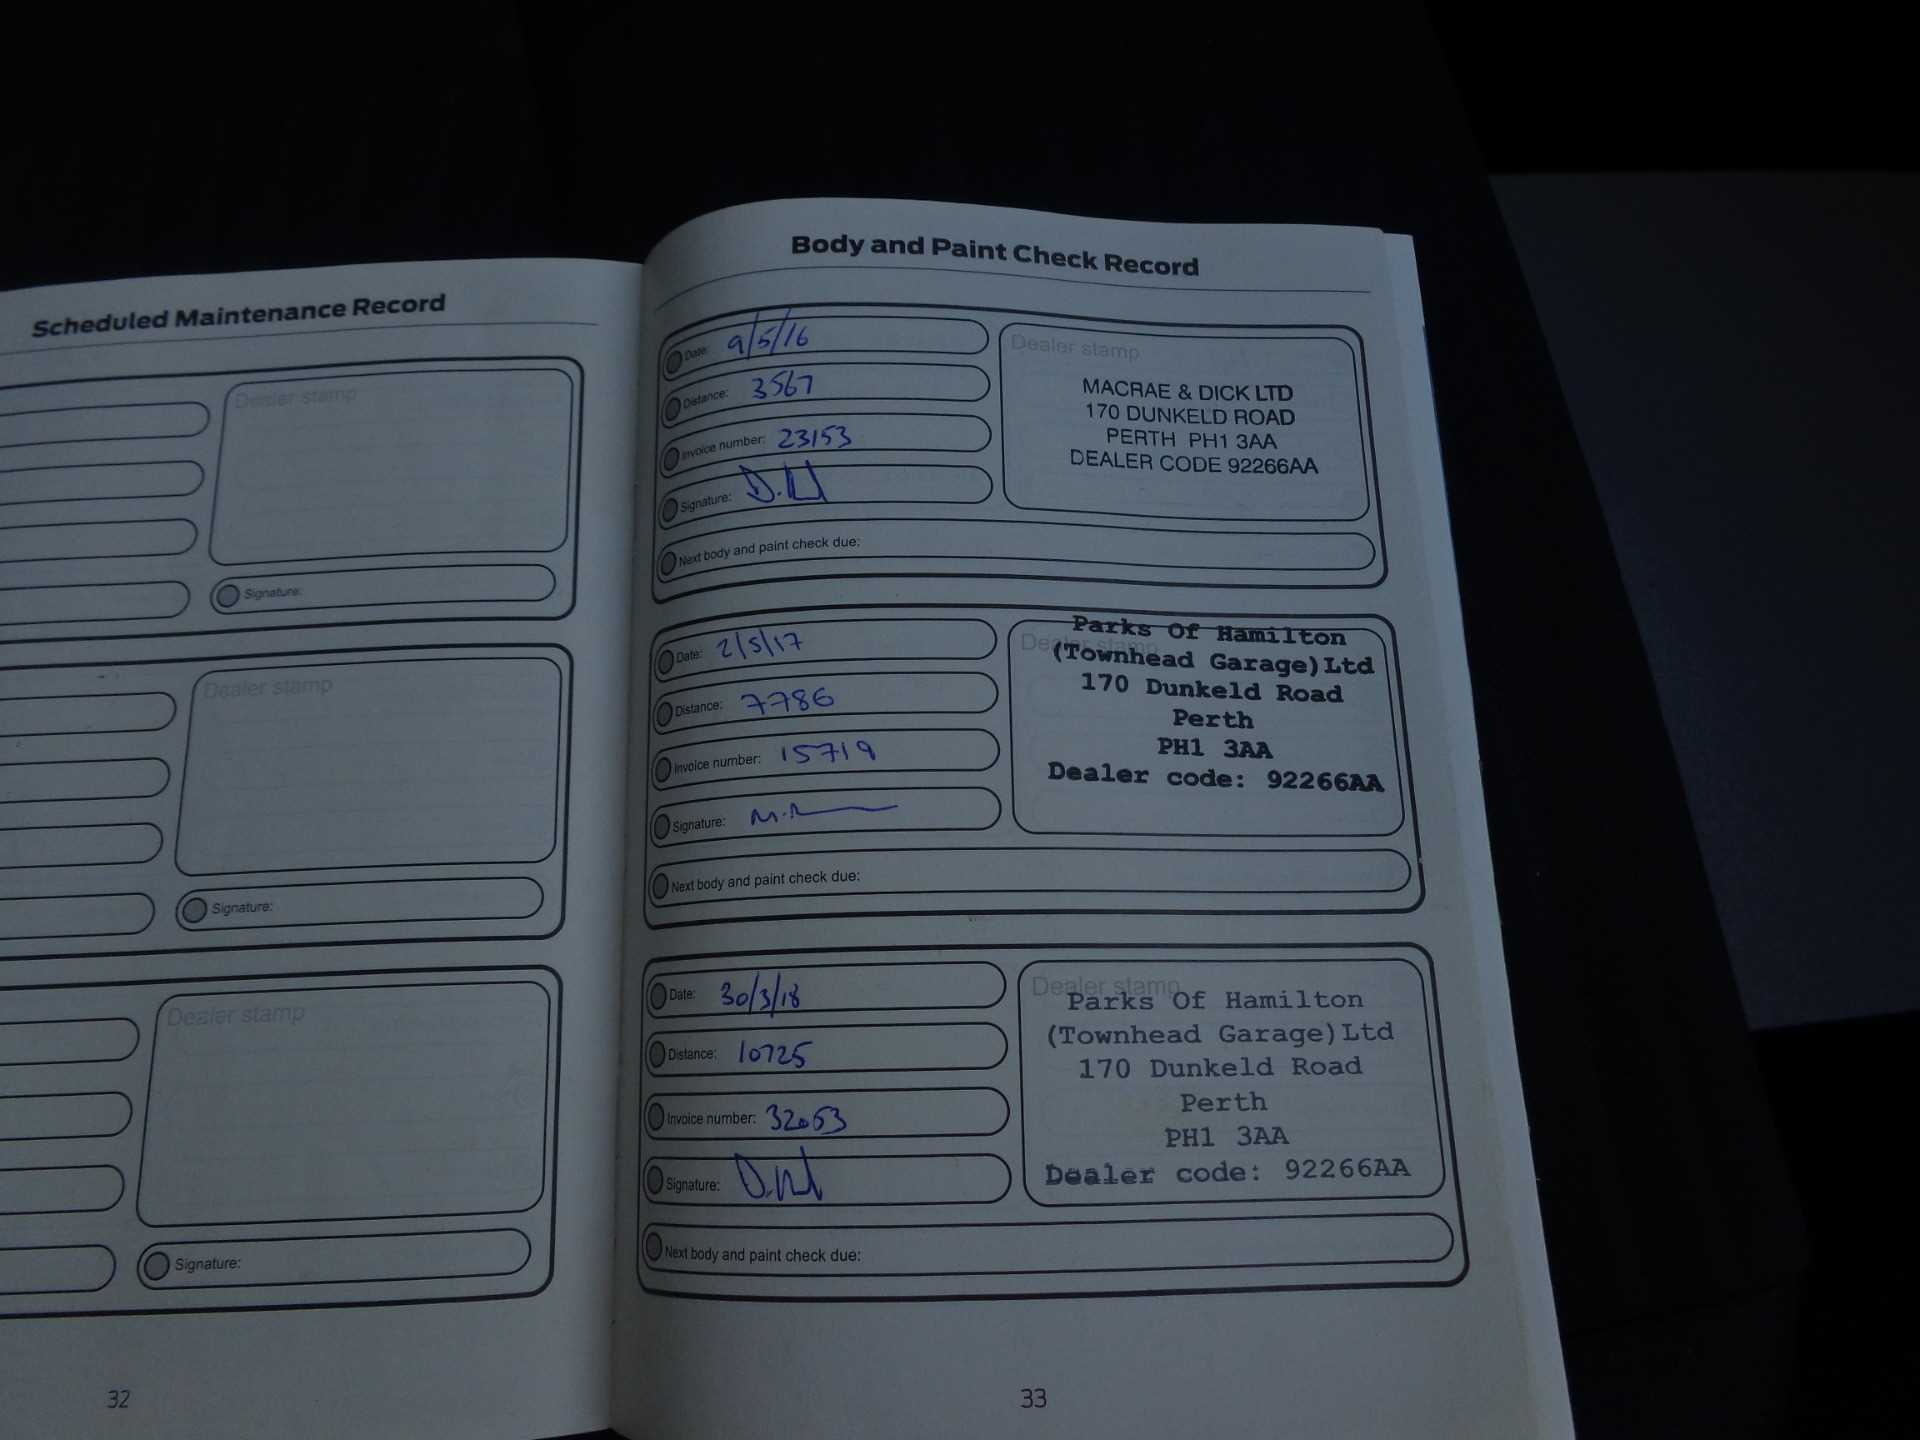 Scheduled Maintenance Record
Dealer stamp
Signature:
Dealer stamp
Signature:
Dealer stamp
Signature:
32
Body and Paint Check Record
Date: 9/5/16
Distance: 3567
Invoice number: 23153
Signature:
Dealer stamp
MACRAE & DICK LTD
170 DUNKELD ROAD
PERTH PH1 3AA
DEALER CODE 92266AA
Next body and paint check due:
Date: 2/5/17
Distance: 7786
Invoice number: 15719
Signature:
Dealer stamp
Parks Of Hamilton
(Townhead Garage)Ltd
170 Dunkeld Road
Perth
PH1 3AA
Dealer code: 92266AA
Next body and paint check due:
Date: 30/3/18
Distance: 10725
Invoice number: 32053
Signature:
Dealer stamp
Parks Of Hamilton
(Townhead Garage)Ltd
170 Dunkeld Road
Perth
PH1 3AA
Dealer code: 92266AA
Next body and paint check due:
33